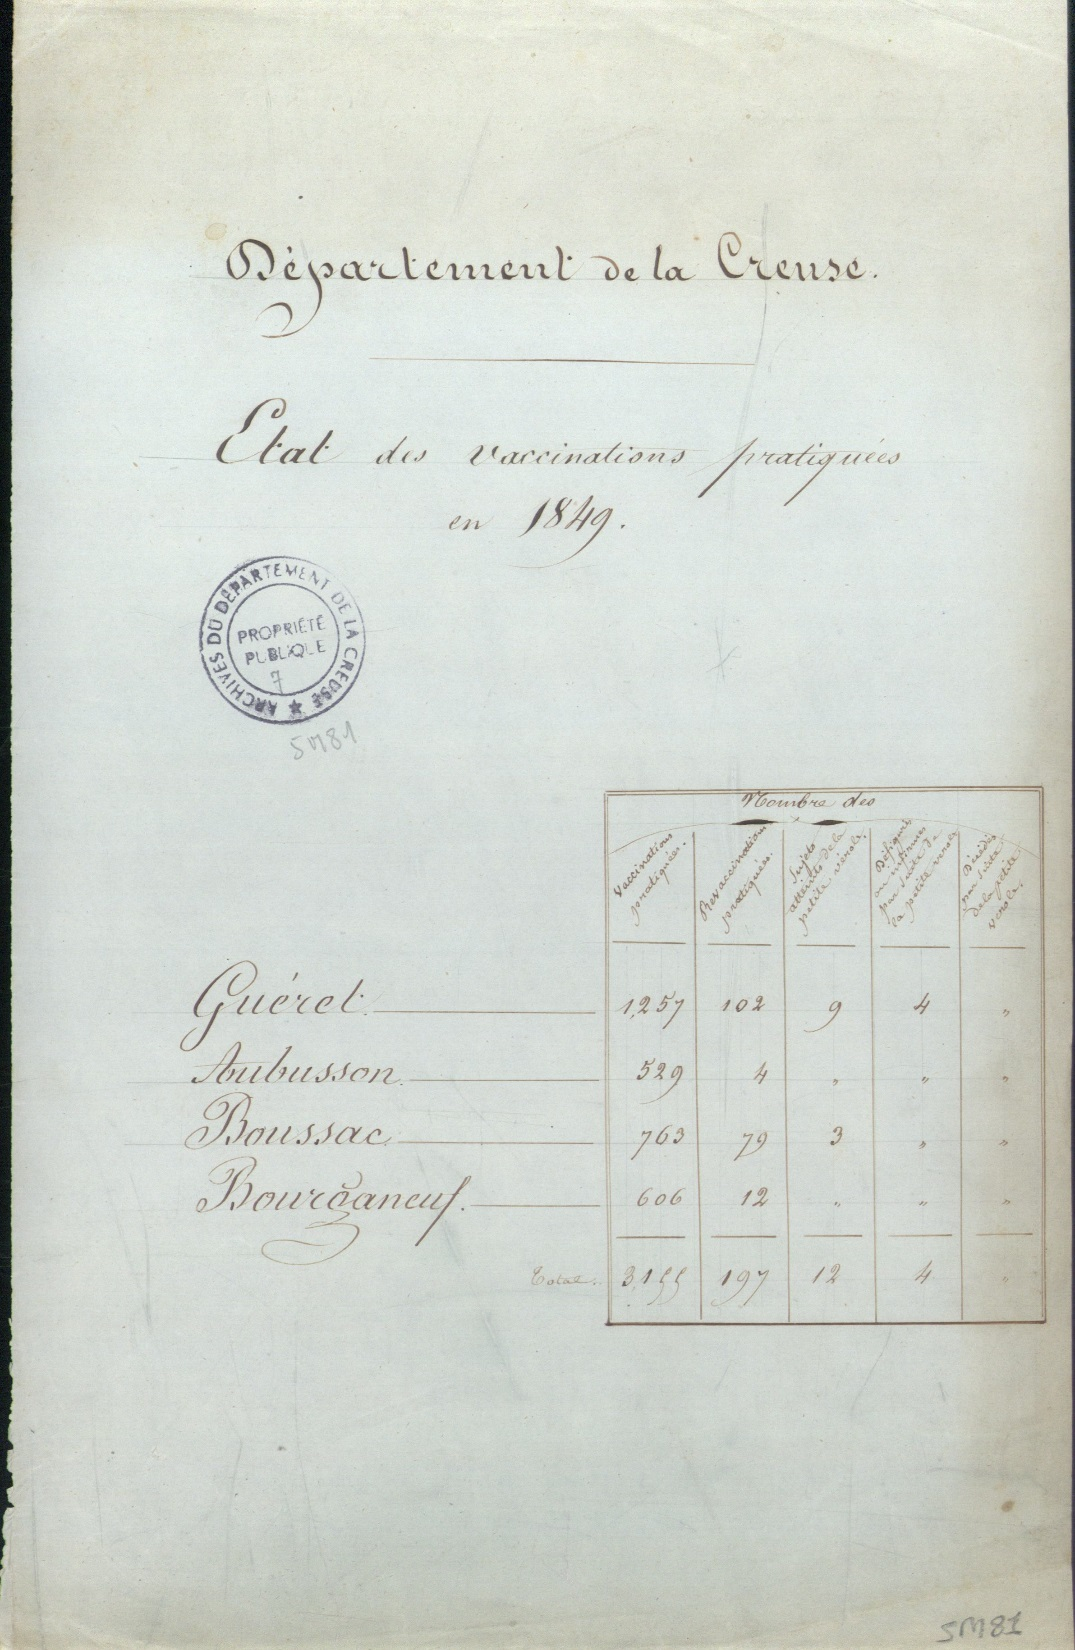 Département de la Creuse.
Etat des vaccinations pratiquées
en 1849.
ARCHIVES DU DÉPARTEMENT DE LA CREUSE
PROPRIÉTÉ
PUBLIQUE
7
5M81
Nombre des
Vaccinations pratiquées.
Revaccinations pratiquées.
Sujets atteints de la petite vérole.
Défigurés ou infirmes par suite de la petite verole
Décédés par suite de la petite vérole.
Guéret 1,257 102 9 4 "
Aubusson 529 4 " " "
Boussac 763 79 3 " "
Bourganeuf. 606 12 " " "
Total. 3,155 197 12 4 "
5M81